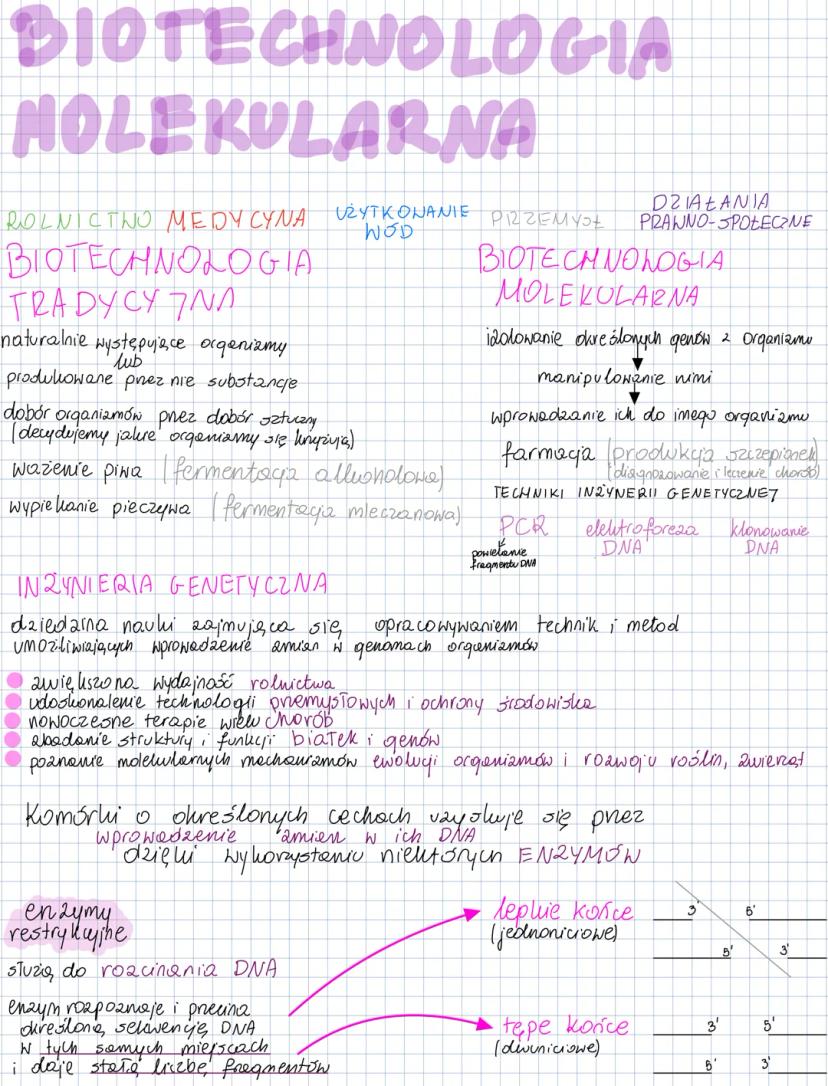 BIOTECHNOLOGIA
MOLEKULARNA
ROLNICTWO MEDYCYNA UŻYTKOWANIE WÓD PRZEMYSŁ DZIAŁANIA PRAWNO-SPOŁECZNE
BIOTECHNOLOGIA
TRADYCYJNA
naturalnie występujące organizmy
lub
produkowane przez nie substancje
dobór organizmów przez dobór sztuczny
(decydujemy jakie organizmy się krzyżują)
ważenie piwa (fermentacja alkoholowa)
wypiekanie pieczywa (fermentacja mleczanowa)
BIOTECHNOLOGIA
MOLEKULARNA
izolowanie określonych genów z organizmu
manipulowanie nimi
wprowadzanie ich do innego organizmu
farmacja (produkcja szczepionek)
(diagnozowanie i leczenie chorób)
TECHNIKI INŻYNERII GENETYCZNEJ
PCR elektroforeza DNA klonowanie DNA
powielanie
fragmentu DNA
INŻYNIERIA GENETYCZNA
dziedzina nauki zajmująca się opracowywaniem technik i metod
umożliwiających wprowadzenie zmian w genomach organizmów
zwiększona wydajność rolnictwa
udoskonalenie technologii przemysłowych i ochrony środowiska
nowoczesne terapie wielu chorób
zbadanie struktury i funkcji białek i genów
poznanie molekularnych mechanizmów ewolucji organizmów i rozwoju roślin, zwierząt
Komórki o określonych cechach uzyskuje się przez
wprowadzenie zmian w ich DNA
dzięki wykorzystaniu niektórych ENZYMÓW
enzymy
restrykcyjne
służą do rozcinania DNA
enzym rozpoznaje i przecina
określoną sekwencję DNA
w tych samych miejscach
i daje stałą liczbę fragmentów
lepkie końce
(jednoniciowe)
3' 5'
5' 3'
tępe końce
(dwuniciowe)
3' 5'
5' 3'